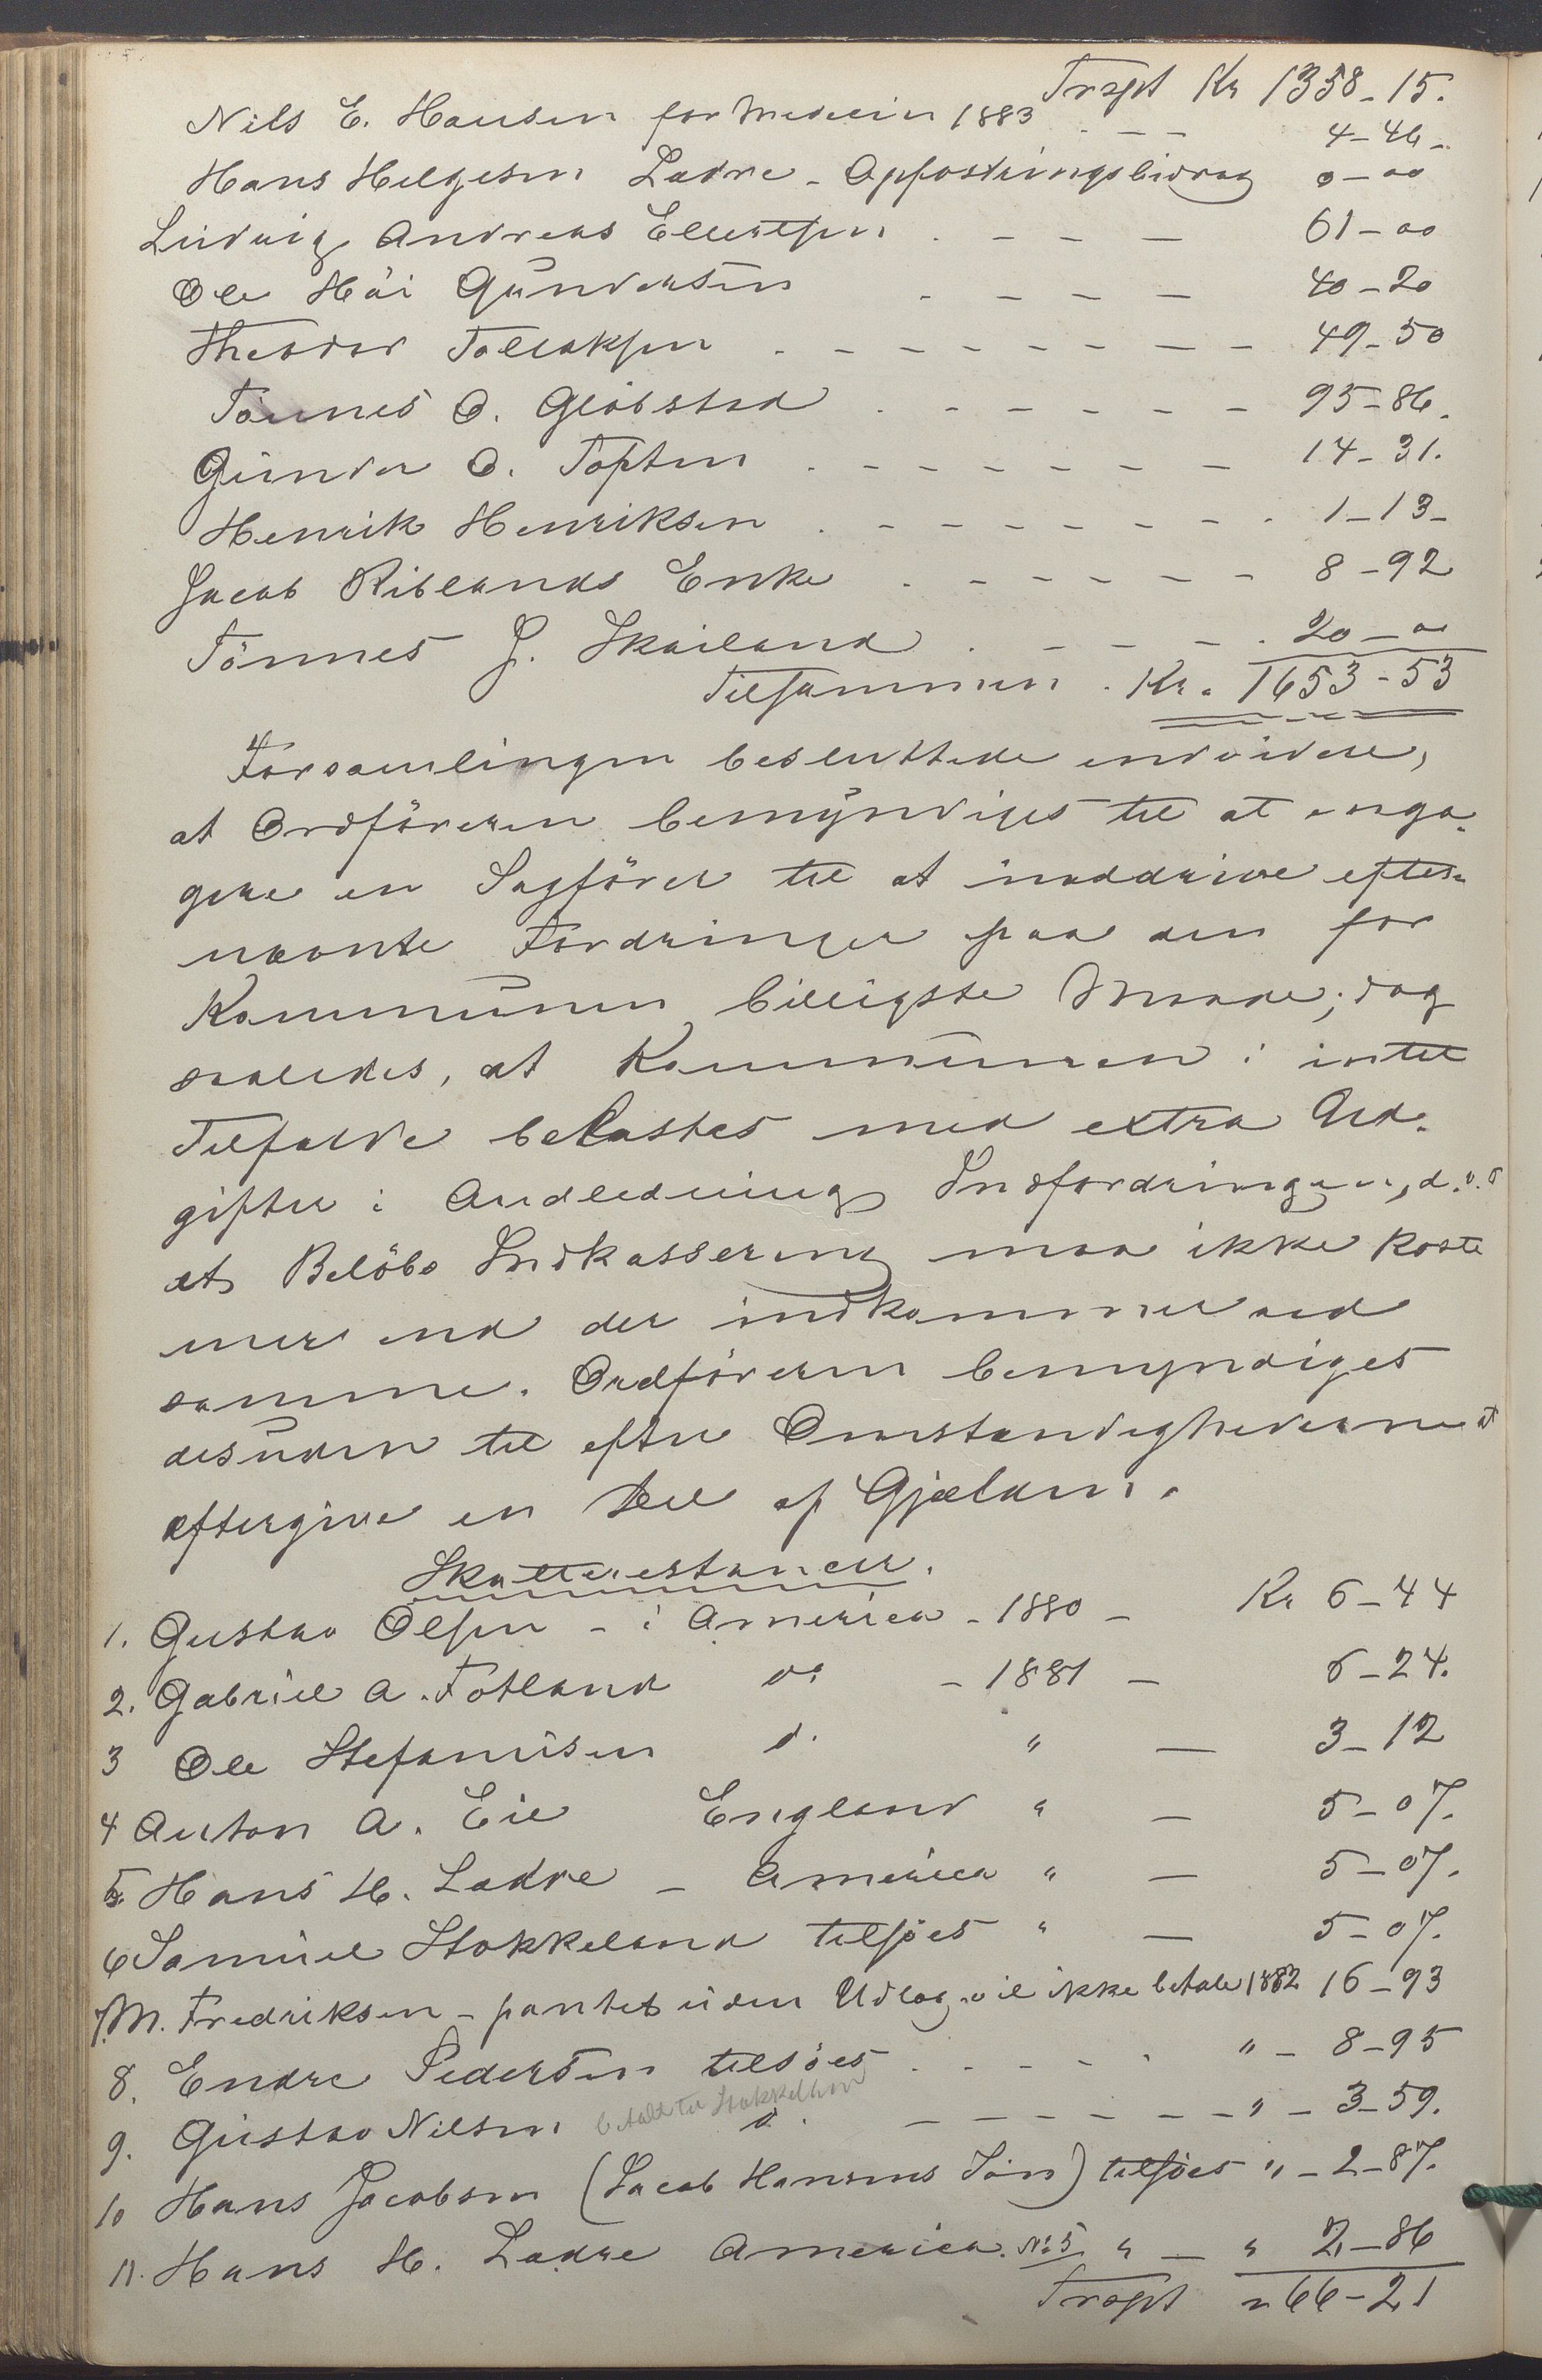 Trspt Kr 1358-15.
Nils E. Hansen for Medecin 1883 - - 4-46-
Hans Helgesen Ladre - Opfostringsbidrag 0-00
Ludvig Andreas Ellertsen - - - 61-00
Ole Höi Gundersen - - - - 40-20
Theodor Tollaksen - - - - - - - - 49-50
Tönnes O. Glöbstad - - - - - - 95-86.
Gunder O. Toften - - - - - - - 14-31.
Henrik Henriksen - - - - - - - - 1-13-
Jacob Riblands Enke - - - - - - 8-92
Tönnes J. Skailand - - - - 20-00
Tilsammen. Kr. 1653-53
Forsamlingen besluttede endvidere,
at Ordföreren bemyndiges til at enga-
gere en Sagförer til at inddrive efter-
nævnte Fordringer paa den for
Kommunen billigste Maade; dog
saaledes, at Kommunen i intet
Tilfælde belastes med extra Ud-
gifter i Andledning Indfordringen, d.v.s
at Belöbs Indkassering maa ikke koste
mere end der indkommer ved
samme. Ordföreren bemyndiges
desuden til efter Omstændighederne at
eftergive en Del af Gjælden.
Skatterestancer.
1. Gustav Olsen - i America - 1880 - Kr 6-44
2. Gabriel A. Fotland do - 1881 - 6-24.
3 Ole Stefanusen d. " - 3-12
4 Anton A. Eie England " - 5-07.
5 Hans H. Ladre - America " - 5-07.
6 Samuel Stokkeland tilsjöes " - 5-07.
7. M. Fredriksen - pantet uden Udlæg. vil ikke betale 1882 16-93
8. Endre Pedersen tilsöes - - - - " - 8-95
betalt til Stokkeland
9. Gustav Nilsen d. - - - - - - " - 3-59.
10 Hans Jacobsen (Jacob Hansens Sön) tilsjöes " - 2-87.
11. Hans H. Ladre America. No 5 " - " 2-86
Trspt " 66-21